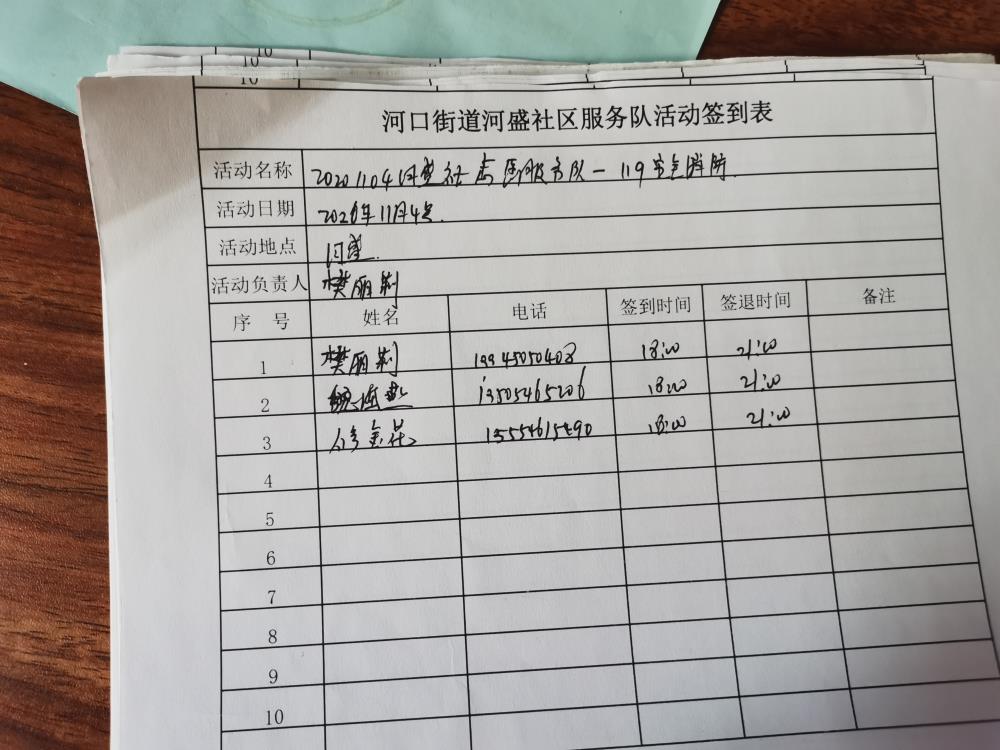 10
10
10
河口街道河盛社区服务队活动签到表
活动名称 20201104河盛社区服务队一119安全消防
活动日期 2020年11月4号.
活动地点 河盛
活动负责人 樊丽荆
序 号 姓名 电话 签到时间 签退时间 备注
1 樊丽荆 19945050408 18:00 21:00
2 13505465206 18:00 21:00
3 15554615490 18:00 21:00
4
5
6
7
8
9
10